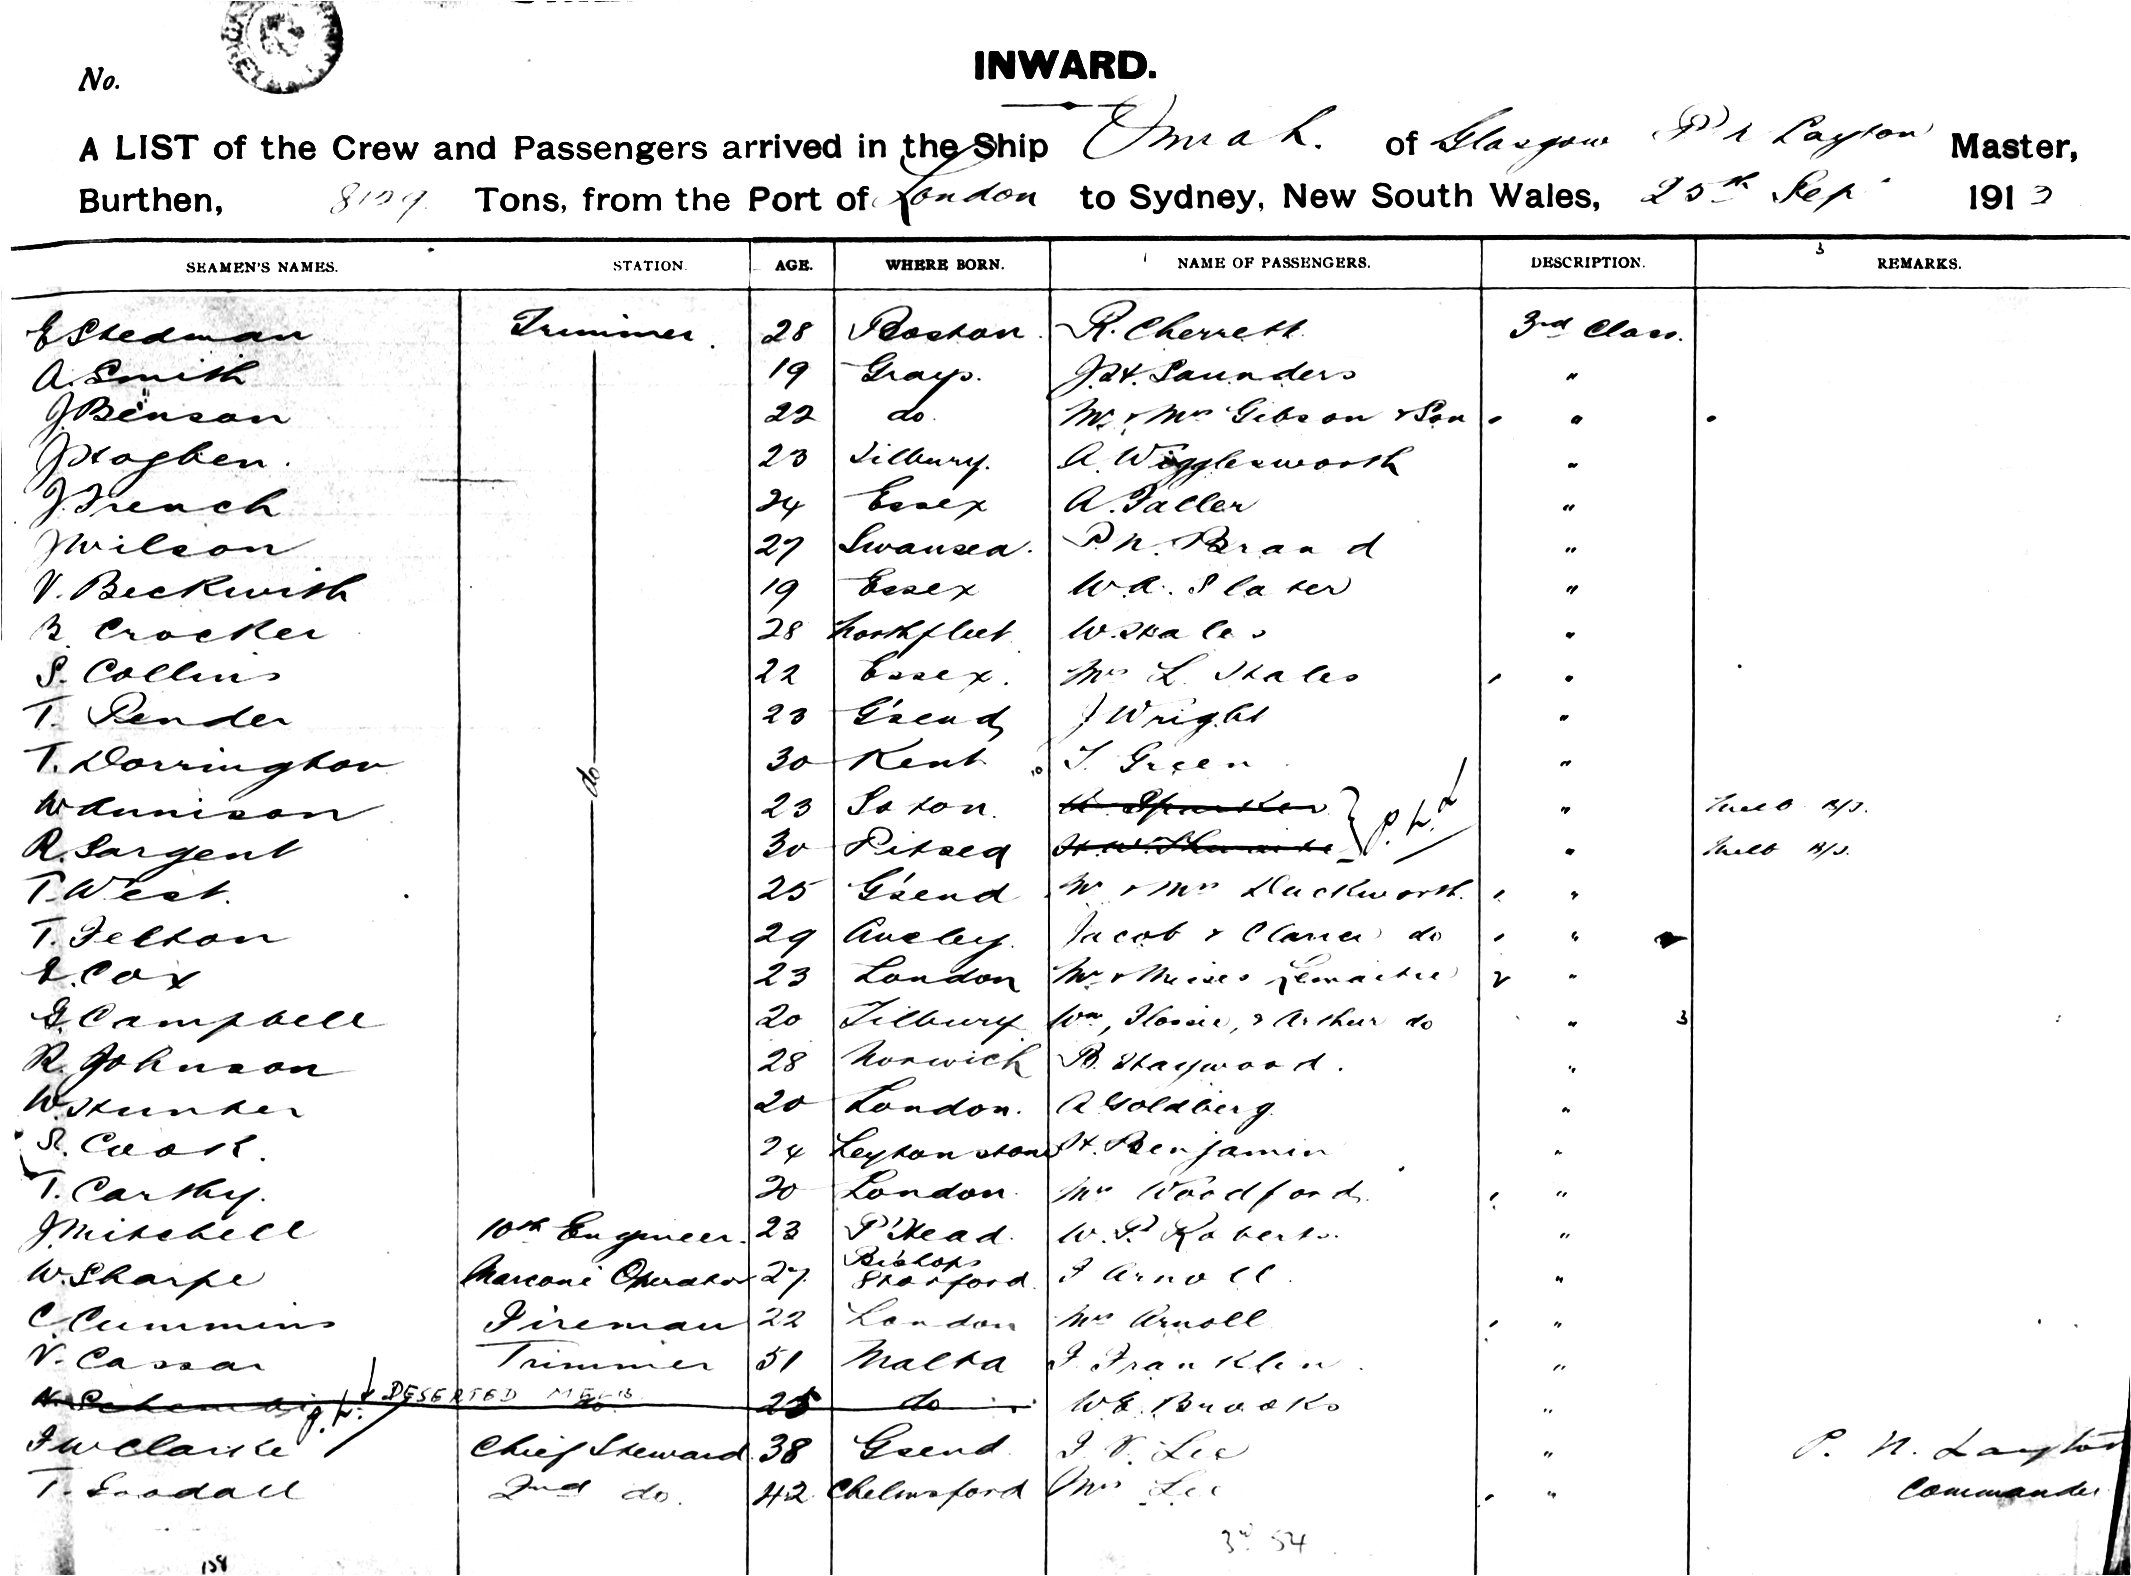 No.
INWARD.
A LIST of the Crew and Passengers arrived in the Ship Omrah. of Glasgow P N Layton Master,
Burthen, 8129 Tons, from the Port of London to Sydney, New South Wales, 25th Sep 1913
SEAMEN'S NAMES. STATION. AGE. WHERE BORN. NAME OF PASSENGERS. DESCRIPTION. REMARKS.
E Stedman Trimmer. 28 Boston. R. Cherrett 3rd Class.
A. Smith 19 Grays. J. H. Saunders "
J. Benson 22 do. Mr & Mrs Gibson & Son "
J Hogben. 23 Tilbury. A. Wigglesworth "
J. French 24 Essex A. Faller "
J Wilson 27 Swansea. P. N. Brand "
V. Beckwith 19 Essex W. A. Slater "
B. Crocker 28 Northfleet W. Hales "
S. Collins 22 Essex. Mrs L. Hales "
T. Pender 23 G'send J Wright "
T. Dorrington do 30 Kent T. Green "
W Annison 23 Soton. "
R. Sargent 30 Pitsea "
T. West. 25 G'send Mr & Mrs Duckworth. "
T. Felton 29 Aveley. Jacob & do "
E. Cox 23 London Mr & Misses Lemaitre "
G. Campbell 20 Tilbury Wm, Flossie, & Arthur do " 3
R. Johnson 28 Norwich B. Haywood. "
W. Hunter 20 London. A Goldberg "
S. Cook. 24 Leytonstone H. Benjamin "
T. Carthy. 20 London. Mrs Woodford. "
J. Mitchell 10th Engineer. 23 P'Head. W. P. Roberts. "
W. Sharpe Marconi Operator 27 Bishops Stortford. F Arnoll. "
C. Cummins Fireman 22 London Mrs Arnoll "
V. Cassar Trimmer 51 Malta J. Franklin. "
DESERTED MELB. do. 25 do W. E. Brooks "
F W Clarke Chief Steward 38 Gsend J. V. Lee " P. N. Layton
T. Goodall 2nd do. 42 Chelmsford Mrs Lee " Commander
3rd 54
158